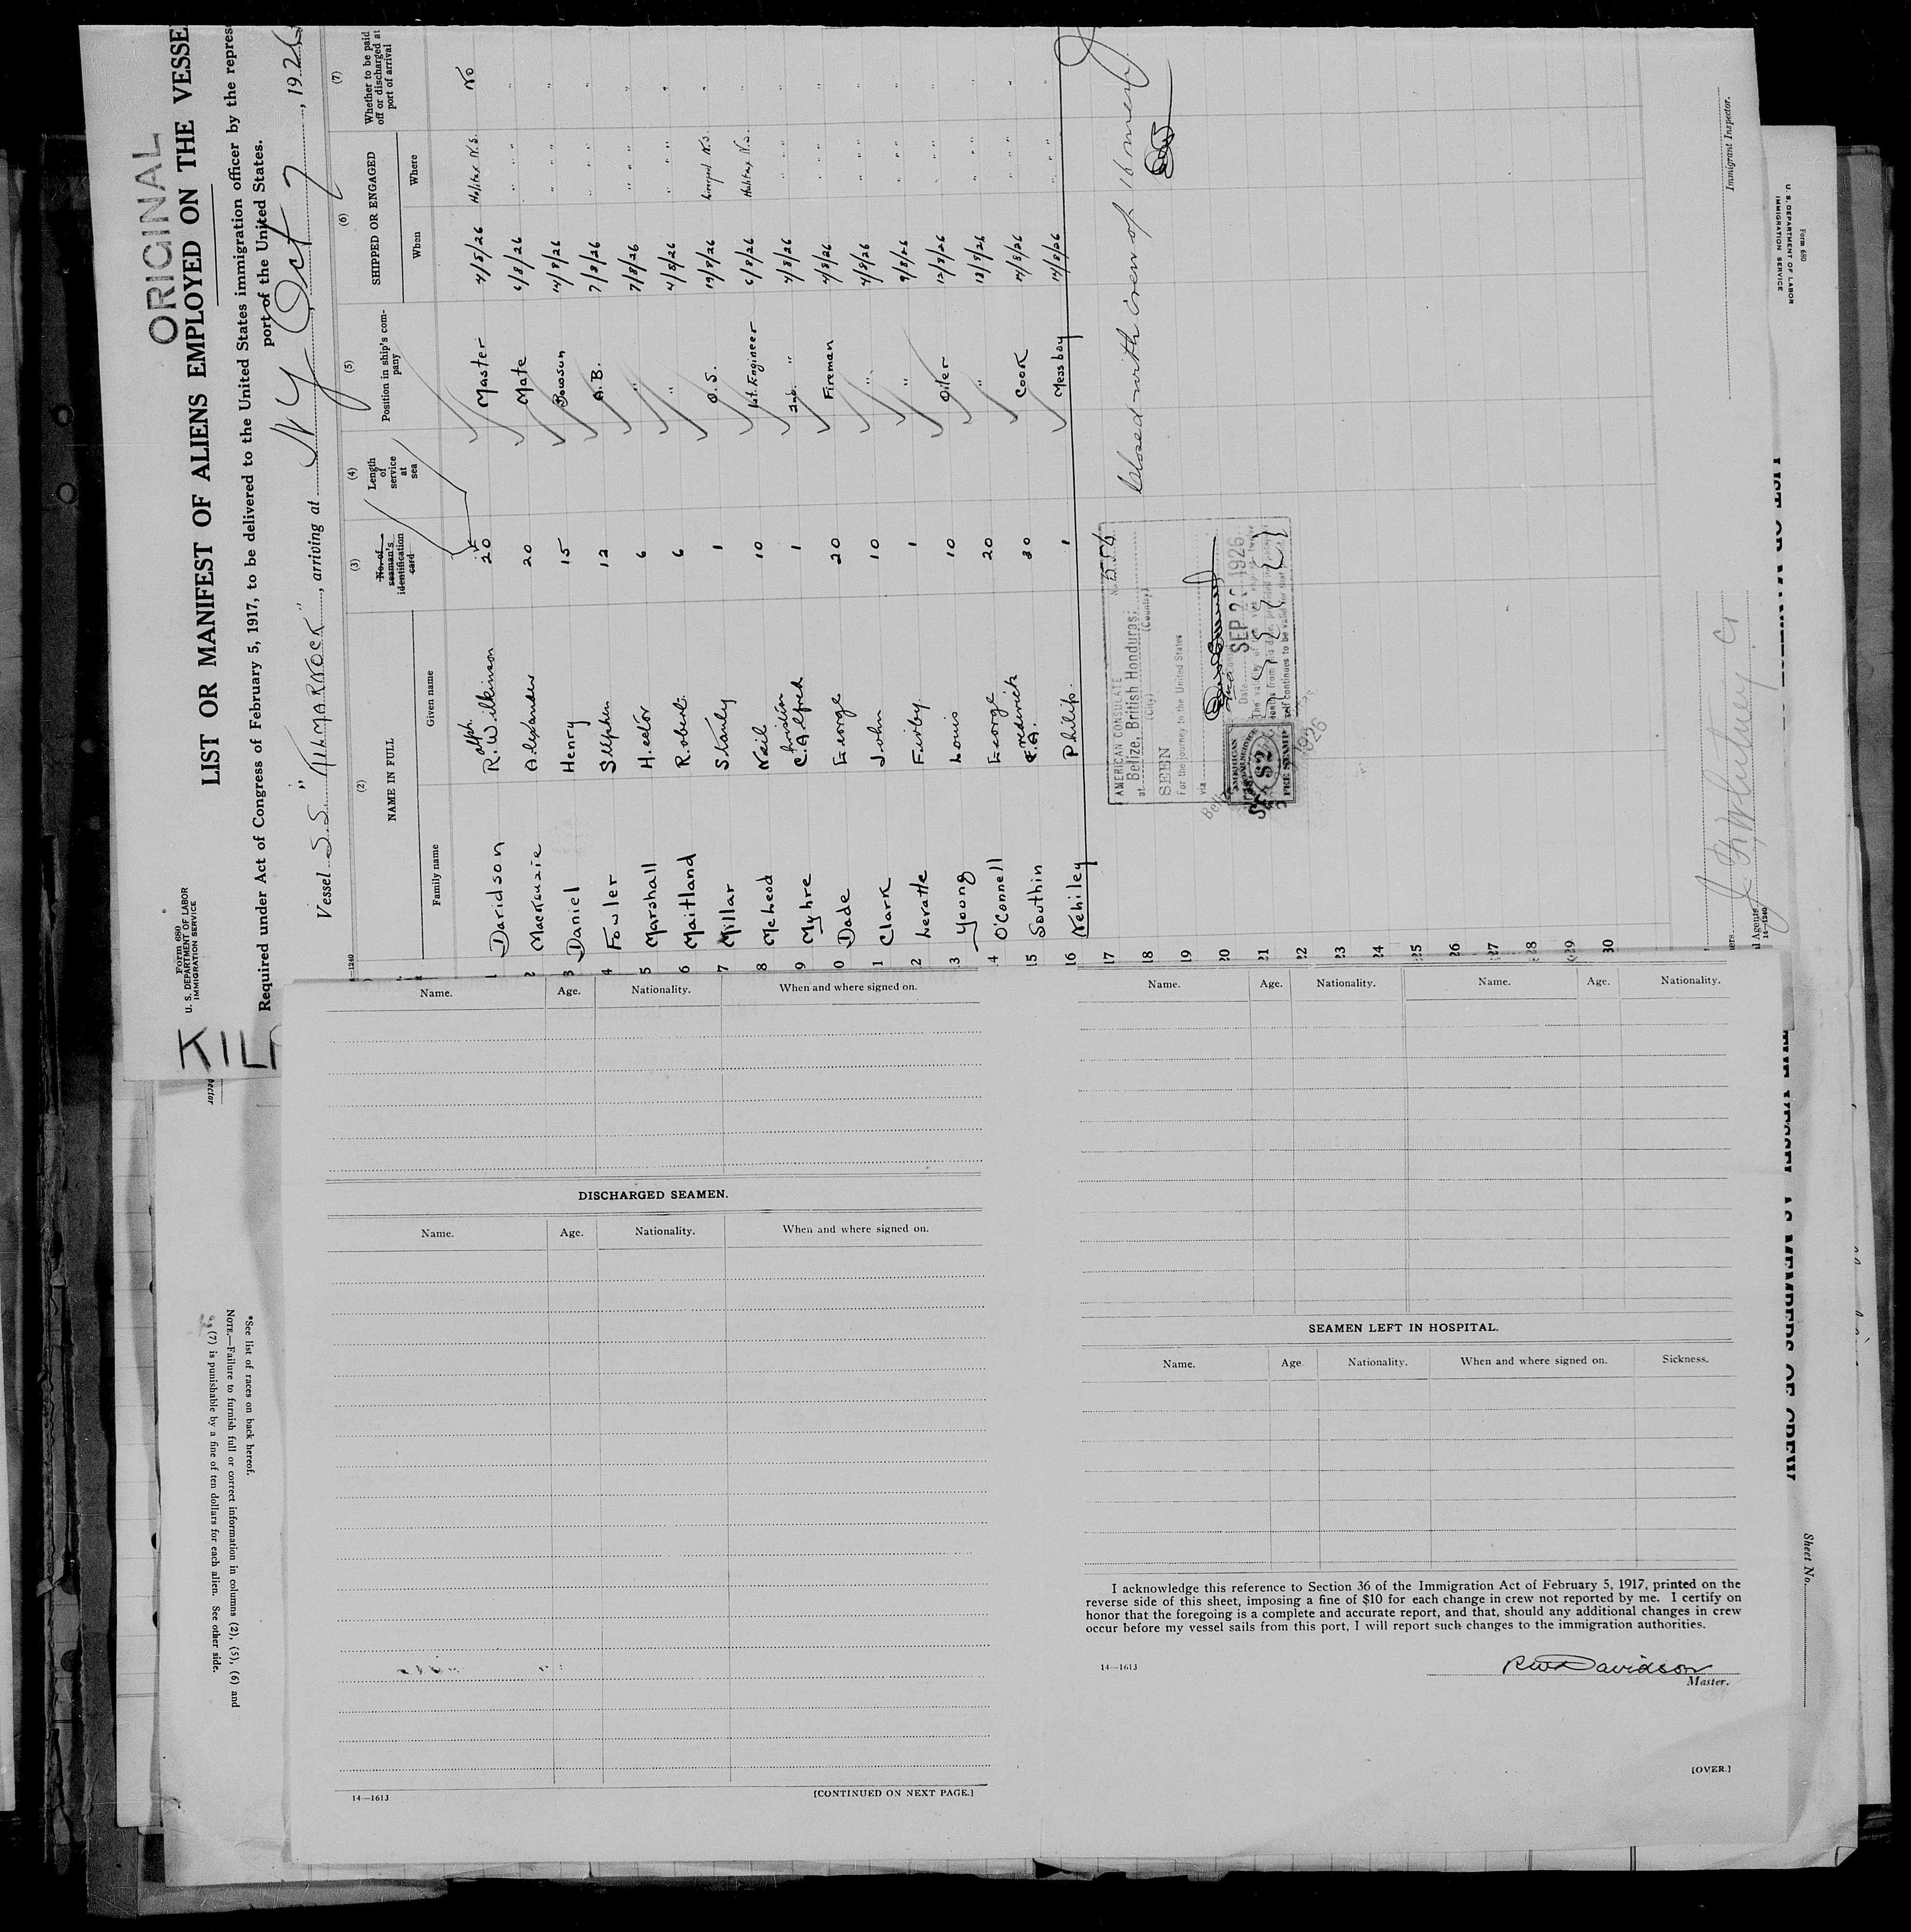 ORIGINAL
Form 680
U. S. DEPARTMENT OF LABOR
IMMIGRATION SERVICE
LIST OR MANIFEST OF ALIENS EMPLOYED ON THE VESSE
Required under Act of Congress of February 5, 1917, to be delivered to the United States immigration officer by the repres
port of the United States.
Vessel S.S. "KILMARNOCK", arriving at N Y Oct 7, 1926
(2) (3) (4) (5) (6) (7)
NAME IN FULL
Family name Given name
No. of seaman's identification card
Length of service at sea
Position in ship's company
SHIPPED OR ENGAGED
When Where
Whether to be paid off or discharged at port of arrival
1 Davidson Ralph R. Wilkinson 20 Master 4/8/26 Halifax N.S. No
2 MacKenzie Alexander 20 Mate 6/8/26 " " " "
3 Daniel Henry 15 Bowson 14/8/26 " " " "
4 Fowler Stephen 12 A.B. 7/8/26 " " " "
5 Marshall Hector 6 " 7/8/26 " " " "
6 Maitland Robert 6 " 4/8/26 " " " "
7 Millar Stanley 1 O.S. 19/8/26 Liverpool N.S. "
8 McLeod Neil 10 1st. Engineer 6/8/26 Halifax N.S. "
9 Myhre Christian C. Alfred 1 2nd. " 4/8/26 " " "
0 Dade George 20 Fireman 4/8/26 " " " "
1 Clark John 10 " 4/8/26 " " " "
2 Firby 1 " 9/8/26 " " " "
3 Young Louis 10 Oiler 12/8/26 " " " "
4 O'Connell George 20 " 13/8/26 " " " "
15 Southin Frederick F.A. 30 Cook 14/8/26 " " " "
16 Nehiley Philip. 1 Mess boy 14/8/26 " " " "
17
18
19
20
21
22
23
24
25
26
27
28
29
30
Closed with Crew of 16 men
AMERICAN CONSULATE
No. 556
at Belize, British Honduras;
(City) (Country)
SEEN
For the journey to the United States
via
Date SEP 2 1926
AMERICAN
$2
FEE STAMP
Immigrant Inspector.
Form 680
U. S. DEPARTMENT OF LABOR
IMMIGRATION SERVICE
14-1240
KIL
Name. Age. Nationality. When and where signed on.
DISCHARGED SEAMEN.
Name. Age. Nationality. When and where signed on.
14—1613
[CONTINUED ON NEXT PAGE.]
Name. Age. Nationality. Name. Age. Nationality.
SEAMEN LEFT IN HOSPITAL.
Name. Age Nationality. When and where signed on. Sickness.
I acknowledge this reference to Section 36 of the Immigration Act of February 5, 1917, printed on the
reverse side of this sheet, imposing a fine of $10 for each change in crew not reported by me. I certify on
honor that the foregoing is a complete and accurate report, and that, should any additional changes in crew
occur before my vessel sails from this port, I will report such changes to the immigration authorities.
14—1613
RW Davidson
Master.
[OVER.]
*See list of races on back hereof.
NOTE.—Failure to furnish full or correct information in columns (2), (5), (6) and
(7) is punishable by a fine of ten dollars for each alien. See other side.
THE VESSEL AS MEMBERS OF CREW
Sheet No.